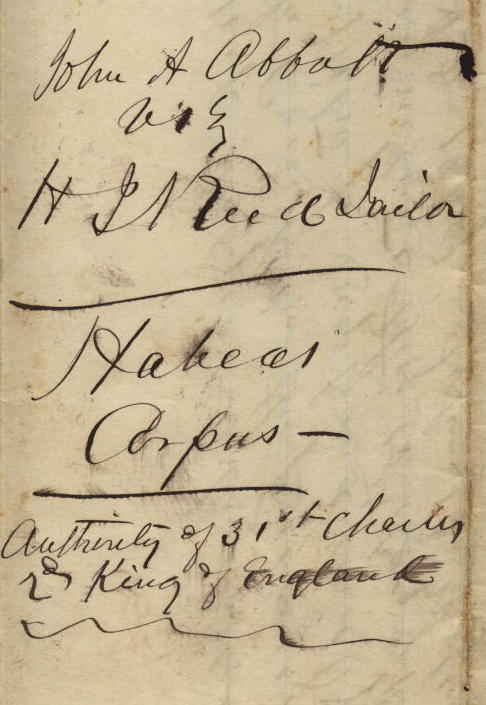 John A Abbott
vs
H I Reed Jailor
Habeas
Corpus —
Authority of 31st Charles
2d King of England